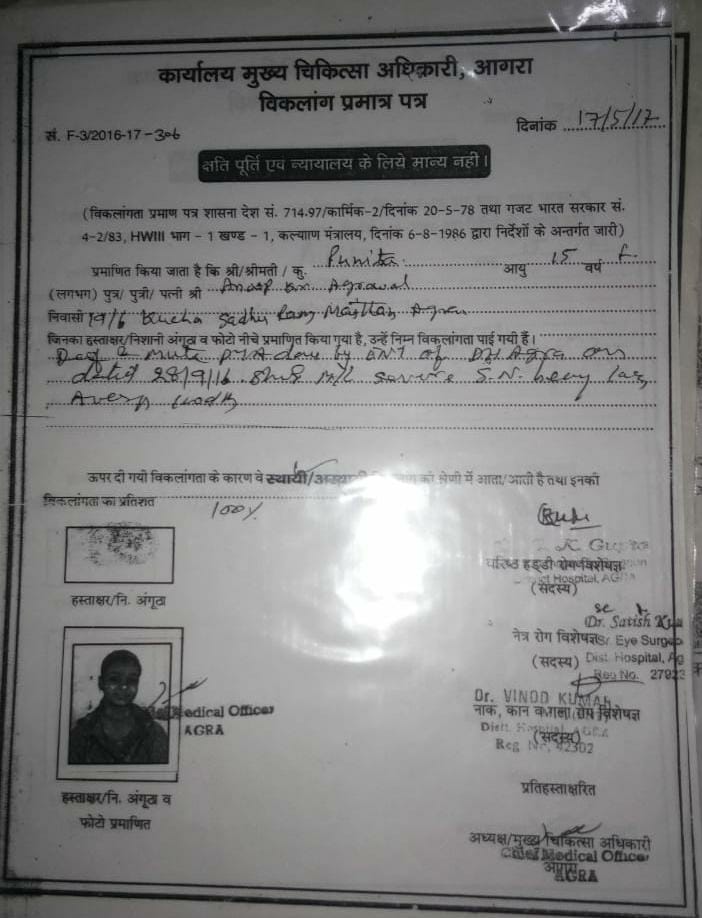 कार्यालय मुख्य चिकित्सा अधिकारी, आगरा
विकलांग प्रमात्र पत्र
सं. F-3/2016-17-306
दिनांक 17/5/17
क्षति पूर्ति एवं न्यायालय के लिये मान्य नही।
(विकलांगता प्रमाण पत्र शासना देश सं. 714.97/कार्मिक-2/दिनांक 20-5-78 तथा गजट भारत सरकार सं.
4-2/83, HWIII भाग - 1 खण्ड - 1, कल्याण मंत्रालय, दिनांक 6-8-1986 द्वारा निर्देशों के अन्तर्गत जारी)
प्रमाणित किया जाता है कि श्री/श्रीमती / कु. Punita आयु 15 वर्ष F.
(लगभग) पुत्र/ पुत्री/ पत्नी श्री Agrawal
निवासी Kucha Sadhu Ram Agra
जिनका हस्ताक्षर/निशानी अंगूठा व फोटो नीचे प्रमाणित किया गया है, उन्हें निम्न विकलांगता पाई गयी हैं।
Deaf & mute done by ENT of DH Agra on
dated 28/9/16 S.N.
ऊपर दी गयी विकलांगता के कारण वे स्थायी/ की श्रेणी में आता/आती है तथा इनकी
विकलांगता का प्रतिशत 100%
हस्ताक्षर/नि. अंगूठा
वरिष्ठ हड्डी रोग विशेषज्ञ
District Hospital, AGRA
(सदस्य)
Dr. Satish
नेत्र रोग विशेषज्ञ Sr. Eye
(सदस्य) Dist. Hospital, Ag
Reg No. 2792
Dr. VINOD KUMAR
नाक, कान व गला रोग विशेषज्ञ
(सदस्य)
Reg No. 42302
Chief Medical Officer
AGRA
हस्ताक्षर/नि. अंगूठा व
फोटो प्रमाणित
प्रतिहस्ताक्षरित
अध्यक्ष/मुख्य चिकित्सा अधिकारी
Chief Medical Officer
आगरा
AGRA